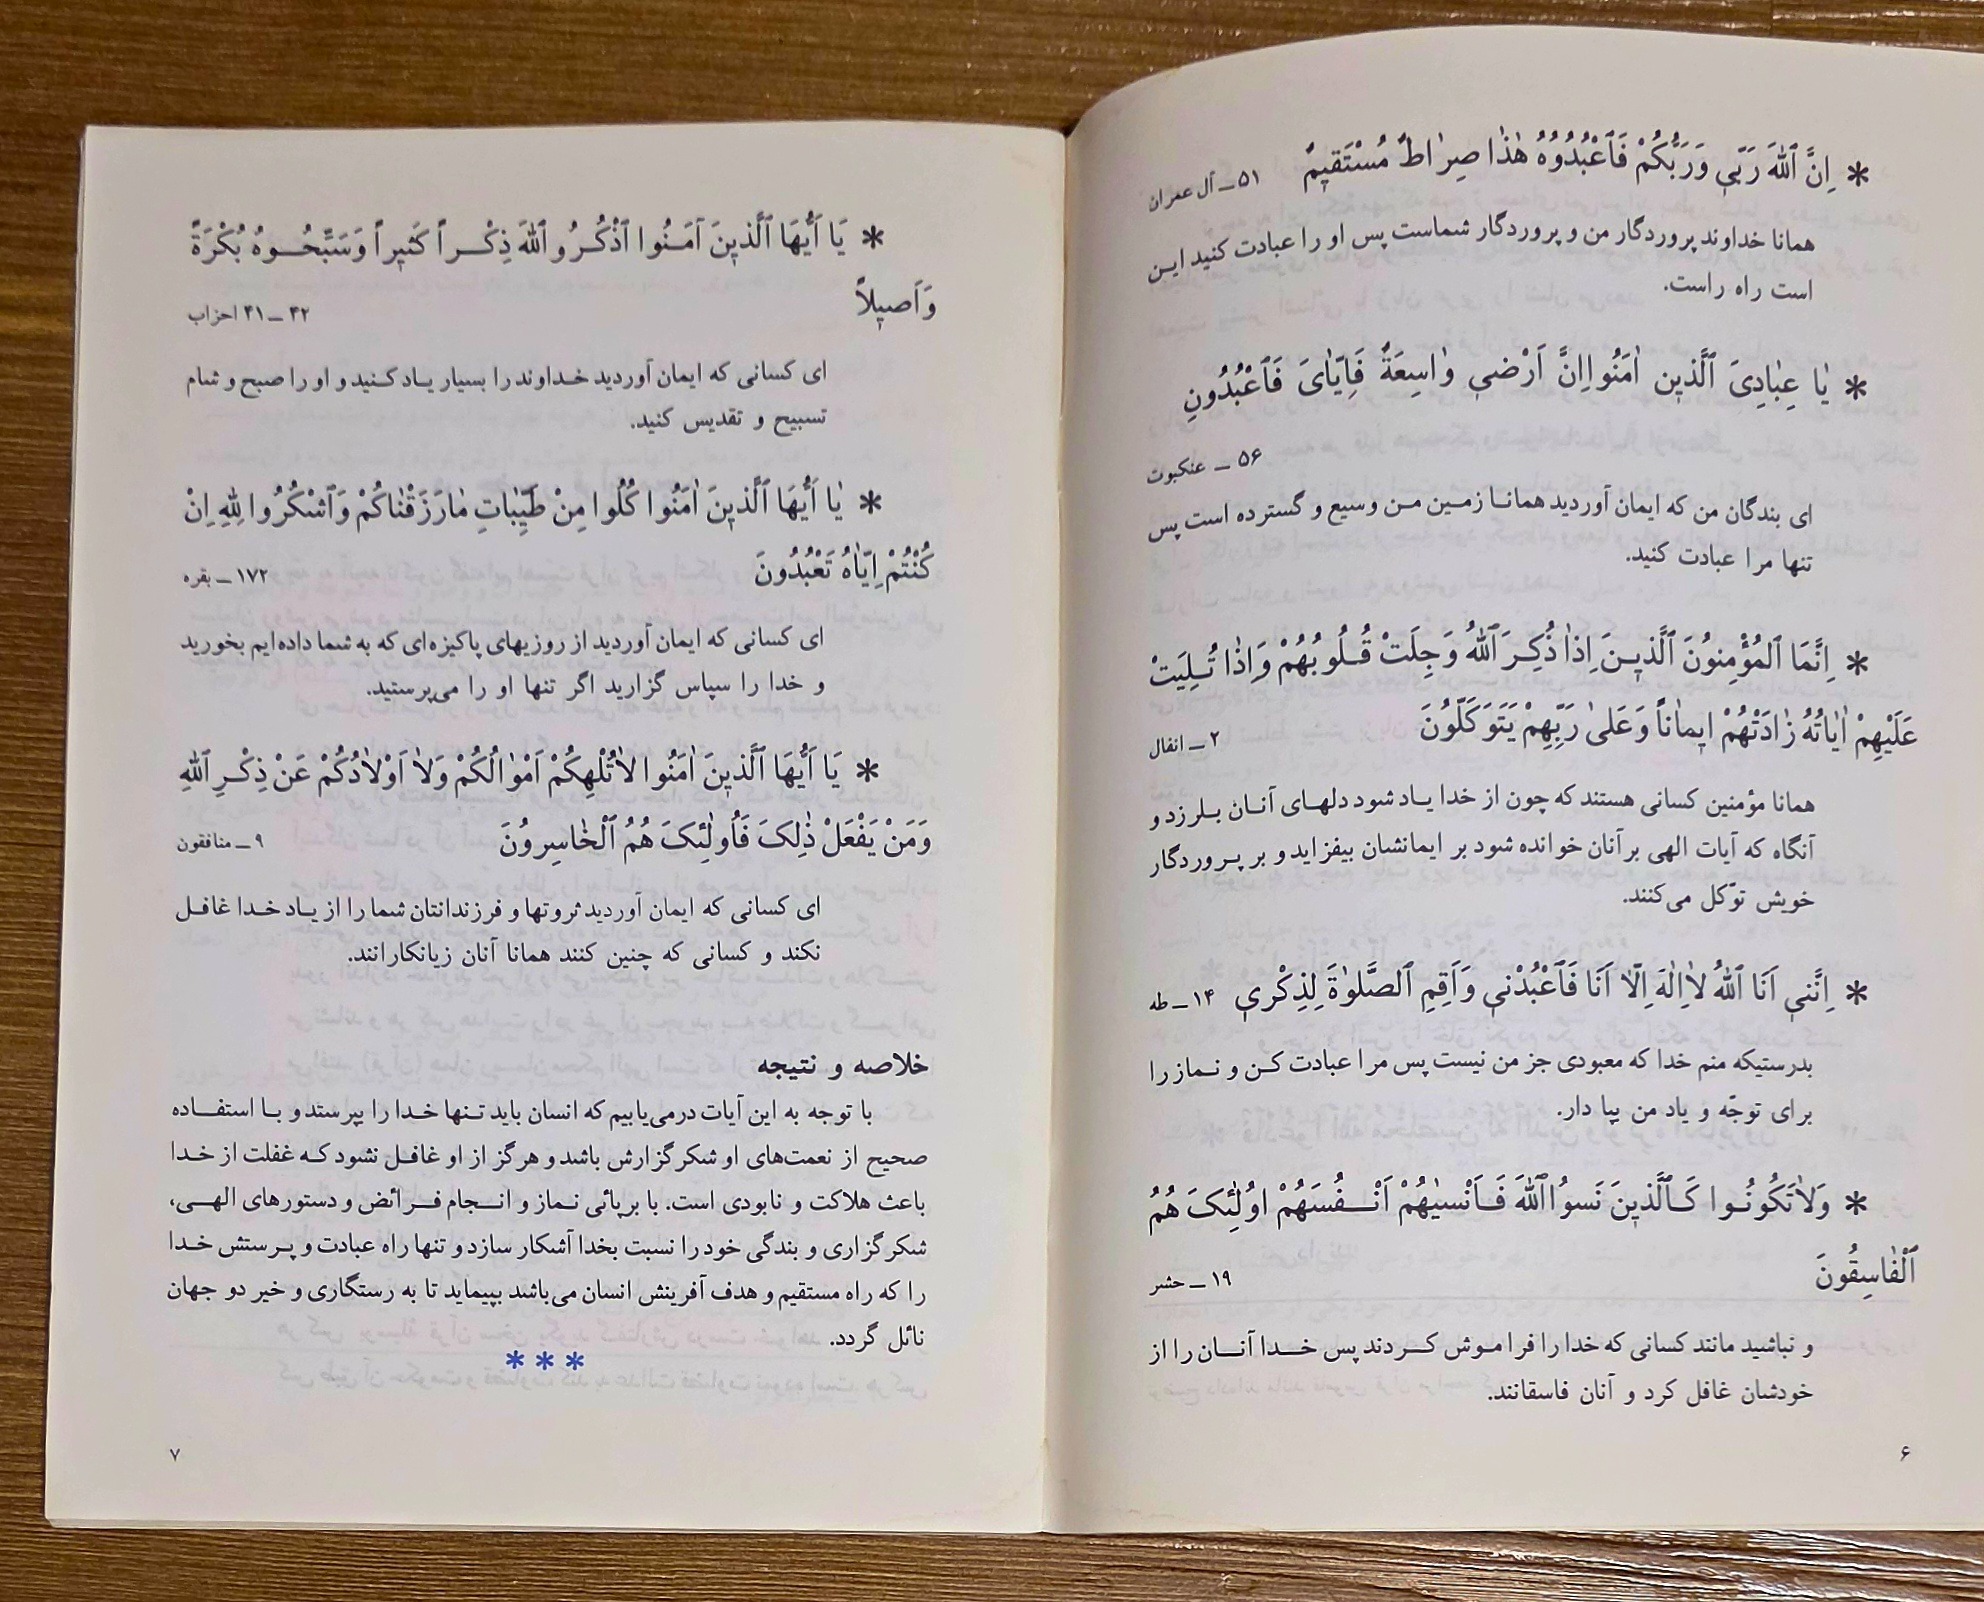 * اِنَّ ٱللّٰهَ رَبّي وَرَبُّكُمْ فَٱعْبُدُوُهُ هٰذٰا صِرٰاطٌ مُسْتَقيمٌ ۵۱ــ آل عمران
همانا خداوند پروردگار من و پروردگار شماست پس او را عبادت کنید ایـن
است راه راست.
* یٰا عِبٰادِیَ ٱلَّذین اٰمَنُوا اِنَّ اَرْضي وٰاسِعَةٌ فَاِیّٰایَ فَٱعْبُدُونِ
۵۶ ــ عنکبوت
ای بندگان من که ایمان آوردید همانـا زمـین مـن وسیع و گسترده است پس
تنها مرا عبادت کنید.
* اِنَّمَا ٱلمُؤْمِنوُنَ ٱلَّذیـنَ اِذٰا ذُکِرَ ٱللّٰهُ وَجِلَتْ قُـلُوبُهُمْ وَاِذٰا تُـلِیَتْ
عَلَیْهِمْ اٰیٰاتُهُ زٰادَتْهُمْ ایمٰاناً وَعَلیٰ رَبِّهِمْ یَتَوَکَّلوُنَ ۲ ــ انفال
همانا مؤمنین کسانی هستند که چون از خدا یـاد شود دلهـای آنـان بـلرزد و
آنگاه که آیات الهی بر آنان خوانده شود بر ایمانشان بیفزاید و بر پـروردگار
خویش توّکل می‌کنند.
* اِنَّني اَنَا ٱللّٰهُ لاٰاِلٰهَ اِلّاٰ اَنَا فَٱعْبُدْني وَاَقِمِ ٱلصَّلوٰةَ لِذِکْري ۱۴ــ طه
بدرستیکه منم خدا که معبودی جز من نیست پس مرا عبادت کـن و نـماز را
برای توجّه و یاد من بپا دار.
* وَلاٰتَکُونُـوا کَـٱلَّذینَ نَسوُا ٱللّٰهَ فَـاَنْسیٰهُمْ اَنْـــفُسَهُمْ اوُلٰئِکَ هُمُ
ٱلْفٰاسِقُونَ ۱۹ ــ حشر
و نباشید مانند کسانی که خدا را فراموش کـردند پس خـدا آنـان را از
خودشان غافل کرد و آنان فاسقانند.
۶
* یَا اَیُّهَا ٱلَّذینَ آمَـنُوا ٱذْکُرُو ٱللّٰهَ ذِکْــراً کَثیراً وَسَبِّحُـــوهُ بُکْرَةً
وَاَصیلاً ۴۲ ــ ۴۱ احزاب
ای کسانی که ایمان آوردید خـداوند را بسیار یـاد کـنید و او را صبح و شام
تسبیح و تقدیس کنید.
* یٰا اَیُّهَا ٱلَّذینَ اٰمَنُوا کُلُوا مِنْ طَیِّبٰاتِ مٰارَزَقْنٰاکُمْ وَٱشْکُرُوا لِلّٰهِ اِنْ
کُنْتُمْ اِیّٰاهُ تَعْبُدُونَ ۱۷۲ ــ بقره
ای کسانی که ایمان آوردید از روزیهای پاکیزه‌ای که به شما داده‌ایم بخورید
و خدا را سپاس گزارید اگر تنها او را می‌پرستید.
* یَا اَیُّهَا ٱلَّذینَ اٰمَنُوا لاٰتُلْهِکُمْ اَمْوٰالُکُمْ وَلاٰ اَوْلاٰدُکُمْ عَنْ ذِکْـرِ ٱللّٰهِ
وَمَنْ یَفْعَلْ ذٰلِکَ فَاُولٰئِکَ هُمُ ٱلْخٰاسِرُونَ ۹ ــ منافقون
ای کسانی که ایمان آوردید ثروتها و فرزندانتان شما را از یـاد خـدا غافـل
نکند و کسانی که چنین کنند همانا آنان زیانکارانند.
خلاصه و نتیجه
با توجه به این آیات درمی‌یابیم که انسان باید تـنها خـدا را بپرستد و بـا استفـاده
صحیح از نعمت‌های او شکرگزارش باشد و هرگز از او غافـل نشود کـه غفلت از خـدا
باعث هلاکت و نابودی است. با برپائی نـماز و انـجام فـرائض و دستورهای الهـی،
شکرگزاری و بندگی خود را نسبت بخدا آشکار سازد و تنها راه عبادت و پـرستش خـدا
را که راه مستقیم و هدف آفرینش انسان می‌باشد بپیماید تا به رستگاری و خیر دو جهان
نائل گردد.
* * *
۷